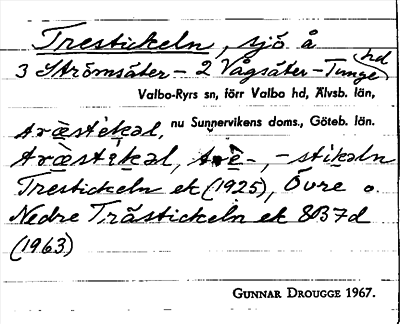 Trestickeln, sjö å
3 Strömsäter – 2 Vågsäter – Tunge hd
Valbo-Ryrs sn, förr Valbo hd, Älvsb. län,
nu Sunnervikens doms., Göteb. län.
træ̀stékəl,
træ̀stìkəl, trè-, -stikəln
Trestickeln ek (1925), Övre o
Nedre Trästickeln ek 8B7d
(1963)
GUNNAR DROUGGE 1967.